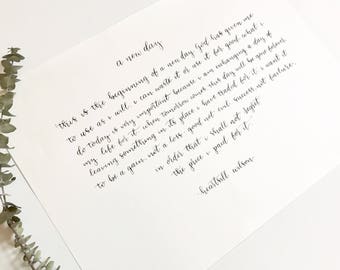 a new day
this is the beginning of a new day. God has given me
to use as i will. i can waste it or use it for good. what i
do today is very important because i am exchanging a day of
my life for it. when tomorrow comes this day will be gone forever,
leaving something in its place i have traded for it. i want it
to be a gain, not a loss. good not evil. success not failure.
in order that i shall not regret
the price i paid for it.
heartsill wilson